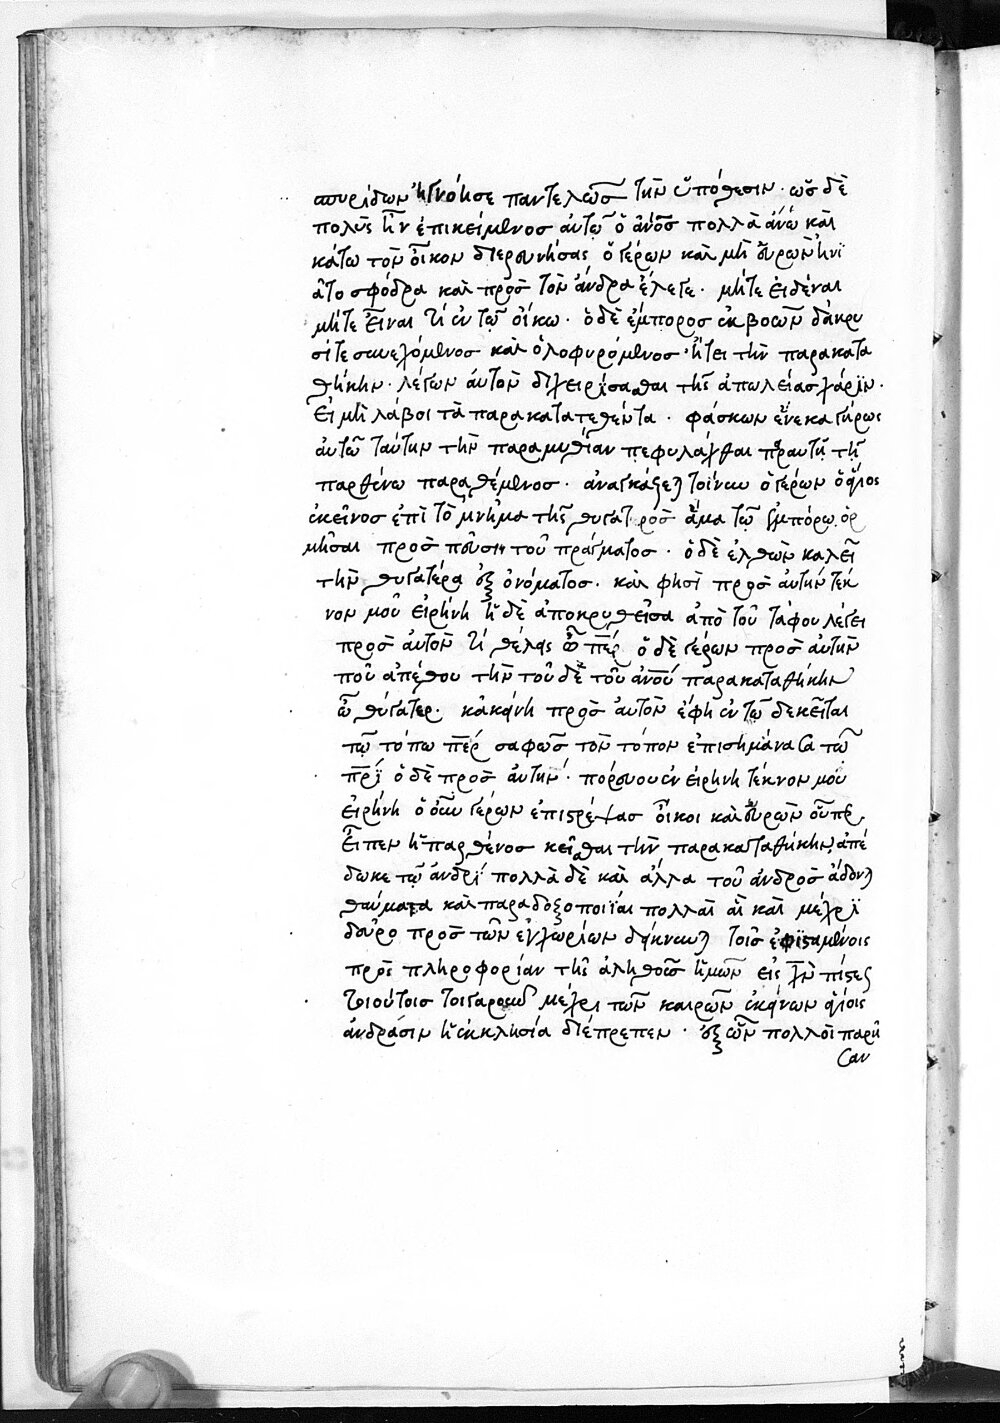 σπυρίδων ἠγνόησε παντελῶς τὴν ὑπόθεσιν· ὡς δὲ
πολὺς ἦν ἐπικείμενος αὐτῷ ὁ ἄνος πολλὰ ἄνω καὶ
κάτω τὸν οἶκον διερευνήσας ὁ γέρων καὶ μὴ εὑρὼν ἠνϊ
ᾶτο σφόδρα καὶ πρὸς τὸν ἄνδρα ἔλεγε· μήτε εἰδέναι
μήτε εἶναι τί ἐν τῷ οἴκω· ὁ δὲ ἔμπορος ἐκβοῶν δάκρυ
σί τε συνεχόμενος καὶ ὀλοφυρόμενος ἤτει τὴν παρακατα
θήκην· λέγων αὐτὸν διχειρίσασθαι τῆς ἀπωλείας χάριν·
εἰ μὴ λάβοι τὰ παρακατατεθέντα· φάσκων ἕνεκα γήρως
αὐτῶ ταύτην τὴν παραμυθίαν πεφυλάχθαι παρ αυτῇ τῇ
παρθένω παραθέμενος· ἀναγκάζεται τοίνυν ὁ γέρων ὁ θεῖος
ἐκεῖνος ἐπὶ τὸ μνῆμα τῆς θυγατρὸς ἅμα τῷ ἐμπόρω ὁρ
μῆσαι πρὸς πεῦσιν τοῦ πράγματος· ὁ δὲ ἐλθὼν καλεῖ
τὴν θυγατέρα ἐξ ὀνόματος· καὶ φησὶ πρὸς αὐτήν τέκ
νον μοῦ εἰρήνη ἡ δὲ ἀποκρυθεῖσα ἀπὸ τοῦ τάφου λέγει
πρὸς αὐτὸν τί θέλεις ὦ περ ὁ δὲ γέρων πρὸς αὐτὴν
ποῦ ἀπέθου τὴν τοῦ δὲ τοῦ ἀνου παρακαταθήκην
ὦ θύγατερ· κἀκείνη πρὸς αὐτὸν ἔφη ἐν τῷ δε κεῖται
τῷ τόπω περ σαφῶς τὸν τόπον ἐπισημάνασα τῶ
πρϊ ὁ δὲ πρὸς αὐτήν· πορεύου ἐν εἰρήνη τέκνον μοῦ
εἰρήνη ὁ οὖν γέρων ἐπιστρέψας οἴκοι καὶ εὑρὼν οὗπερ
εἶπεν ἡ παρθένος κεῖσθαι τὴν παρακαταθήκην, ἀπέ
δωκε τῷ ἀνδρί πολλὰ δὲ καὶ ἄλλα τοῦ ἀνδρὸς ἄδονται
θαύματα καὶ παραδοξοποιΐαι πολλαὶ αἳ καὶ μέχρϊ
δεῦρο πρὸς τῶν ἐγχωρίων δείκνυνται τοῖς ἐφϊσταμένοις
πρὸς πληροφορίαν τῆς ἀληθοῦς ἡμῶν εἰς χν πίστεως
τοιούτοις τοιγαροῦν μέχρι τῶν καιρῶν ἐκείνων θείοις
ἀνδράσιν ἡ ἐκκλησία διέπρεπεν· ἐξ ὧν πολλοὶ παρῆ
σαν